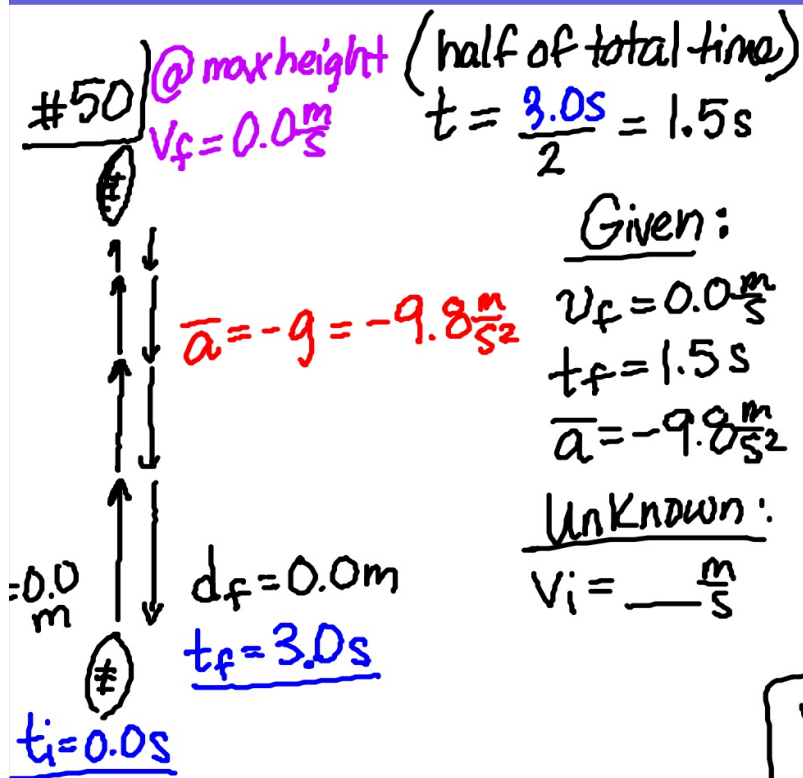 #50
@ max height
v_f = 0.0 m/s
(half of total time)
t = 3.0s/2 = 1.5s
a̅ = -g = -9.8 m/s²
Given:
v_f = 0.0 m/s
t_f = 1.5s
a̅ = -9.8 m/s²
Unknown:
v_i = ___ m/s
=0.0 m
d_f = 0.0m
t_f = 3.0s
t_i = 0.0s